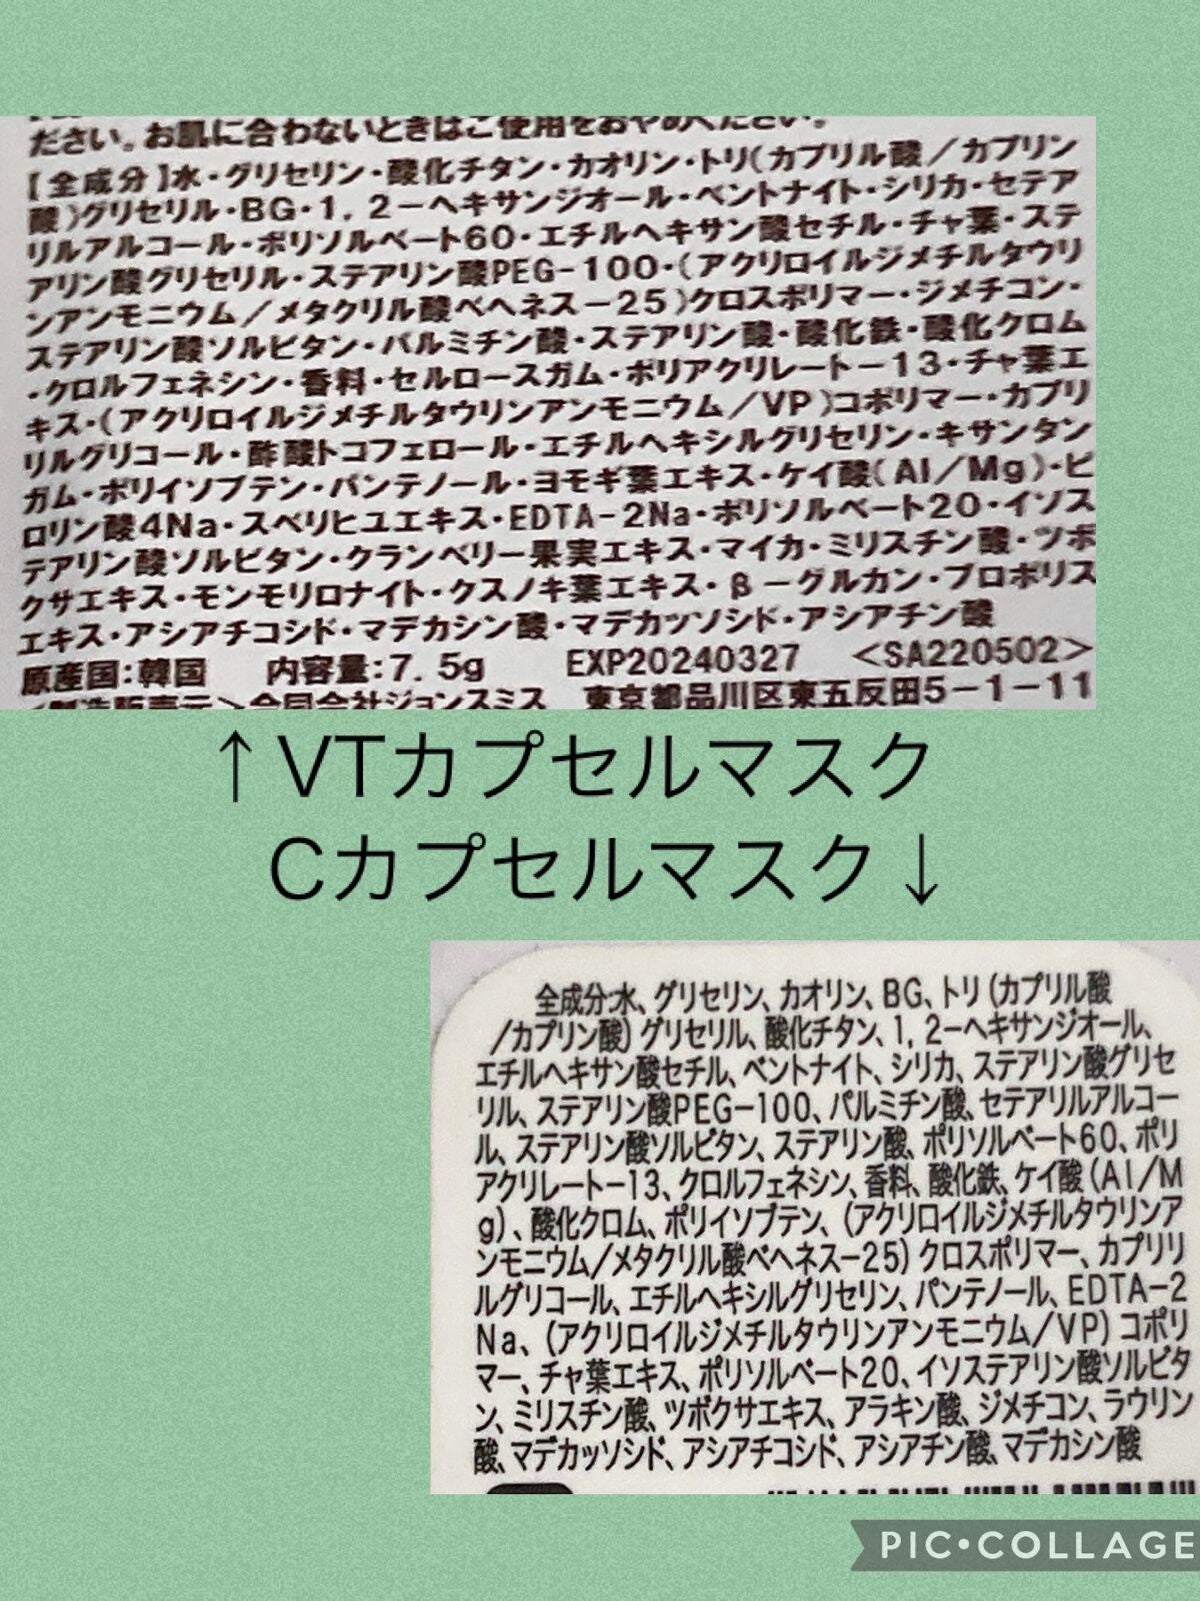 ださい。お肌に合わないときはご使用をおやめください。
【全成分】水・グリセリン・酸化チタン・カオリン・トリ(カプリル酸/カプリン
酸)グリセリル・BG・1,2-ヘキサンジオール・ベントナイト・シリカ・セテア
リルアルコール・ポリソルベート60・エチルヘキサン酸セチル・チャ葉・ステ
アリン酸グリセリル・ステアリン酸PEG-100・(アクリロイルジメチルタウリ
ンアンモニウム/メタクリル酸ベヘネス-25)クロスポリマー・ジメチコン・
ステアリン酸ソルビタン・パルミチン酸・ステアリン酸・酸化鉄・酸化クロム
・クロルフェネシン・香料・セルロースガム・ポリアクリレート-13・チャ葉エ
キス・(アクリロイルジメチルタウリンアンモニウム/VP)コポリマー・カプリ
リルグリコール・酢酸トコフェロール・エチルヘキシルグリセリン・キサンタン
ガム・ポリイソブテン・パンテノール・ヨモギ葉エキス・ケイ酸(Al/Mg)・ピ
ロリン酸4Na・スベリヒユエキス・EDTA-2Na・ポリソルベート20・イソス
テアリン酸ソルビタン・クランベリー果実エキス・マイカ・ミリスチン酸・ツボ
クサエキス・モンモリロナイト・クスノキ葉エキス・β-グルカン・プロポリス
エキス・アシアチコシド・マデカシン酸・マデカッソシド・アシアチン酸
原産国:韓国 内容量:7.5g EXP20240327 <SA220502>
<製造販売元>合同会社ジョンスミス 東京都品川区東五反田5-1-11
↑VTカプセルマスク
Cカプセルマスク↓
全成分:水、グリセリン、カオリン、BG、トリ(カプリル酸
/カプリン酸)グリセリル、酸化チタン、1,2-ヘキサンジオール、
エチルヘキサン酸セチル、ベントナイト、シリカ、ステアリン酸グリセ
リル、ステアリン酸PEG-100、パルミチン酸、セテアリルアルコー
ル、ステアリン酸ソルビタン、ステアリン酸、ポリソルベート60、ポリ
アクリレート-13、クロルフェネシン、香料、酸化鉄、ケイ酸(Al/M
g)、酸化クロム、ポリイソブテン、(アクリロイルジメチルタウリンア
ンモニウム/メタクリル酸ベヘネス-25)クロスポリマー、カプリリ
ルグリコール、エチルヘキシルグリセリン、パンテノール、EDTA-2
Na、(アクリロイルジメチルタウリンアンモニウム/VP)コポリ
マー、チャ葉エキス、ポリソルベート20、イソステアリン酸ソルビタ
ン、ミリスチン酸、ツボクサエキス、アラキン酸、ジメチコン、ラウリン
酸、マデカッソシド、アシアチコシド、アシアチン酸、マデカシン酸
PIC•COLLAGE